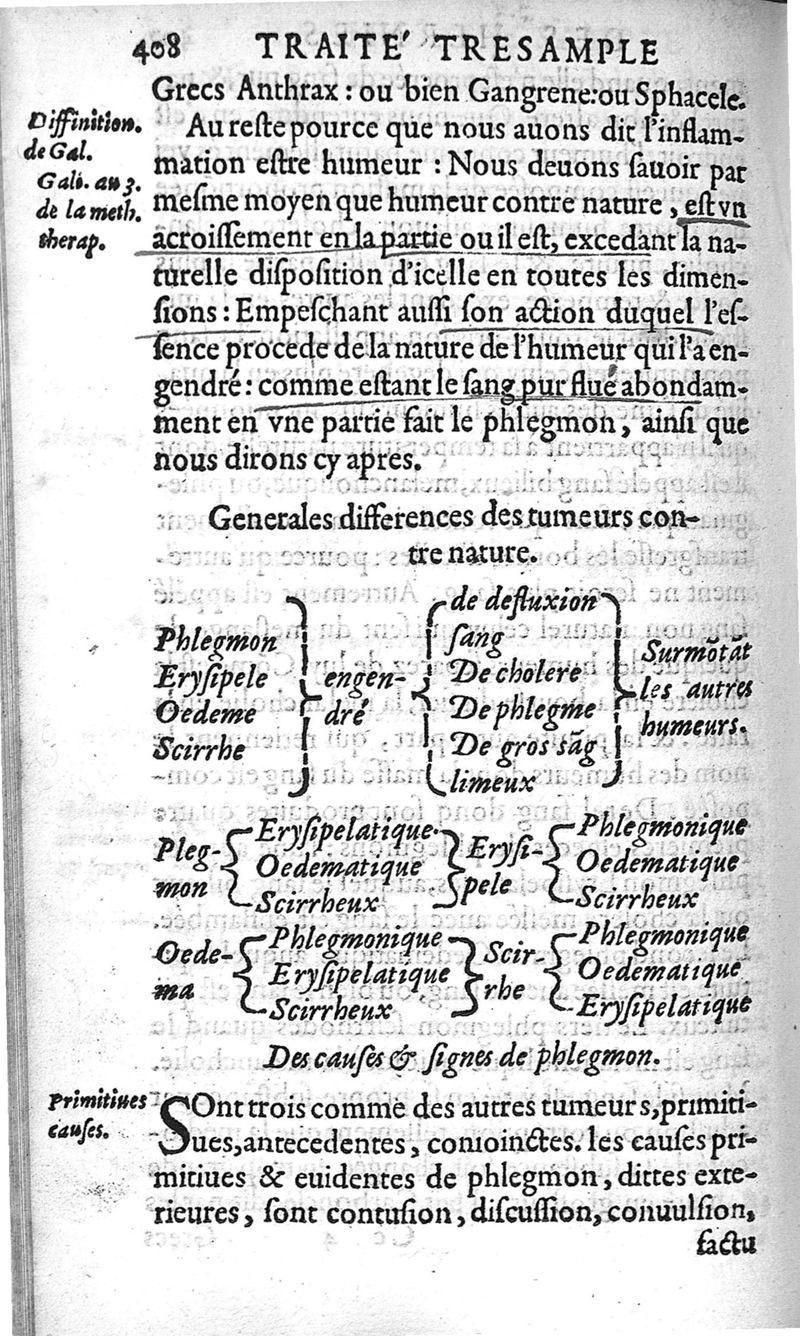 408 TRAITE' TRESAMPLE
Grecs Anthrax : ou bien Gangrene: ou Sphacele.
Diffinition.
de Gal.
Gali. au 3.
de la meth.
therap.
Au reſte pource que nous auons dit l'inflam-
mation eſtre humeur : Nous deuons ſauoir par
meſme moyen que humeur contre nature, eſt vn
acroiſſement en la partie ou il eſt, excedant la na-
turelle diſpoſition d'icelle en toutes les dimen-
ſions : Empeſchant auſſi ſon action duquel l'eſ-
ſence procede de la nature de l'humeur qui l'a en-
gendré : comme eſtant le ſang pur flué abondam-
ment en vne partie fait le phlegmon, ainſi que
nous dirons cy apres.
Generales differences des tumeurs con-
tre nature.
Phlegmon
Eryſipele
Oedeme
Scirrhe
engen-
dré
de defluxion
ſang
De cholere
De phlegme
De gros sãg
limeux
Surmõtãt
les autres
humeurs.
Pleg-
mon
Eryſipelatique.
Oedematique
Scirrheux
Eryſi-
pele
Phlegmonique
Oedematique
Scirrheux
Oede-
ma
Phlegmonique
Eryſipelatique
Scirrheux
Scir-
rhe
Phlegmonique
Oedematique
Eryſipelatique
Des cauſes & ſignes de phlegmon.
Primitiues
cauſes.
SOnt trois comme des autres tumeurs, primiti-
ues, antecedentes, conioinctes. les cauſes pri-
mitiues & euidentes de phlegmon, dittes exte-
rieures, ſont contuſion, diſcuſſion, conuulſion,
factu